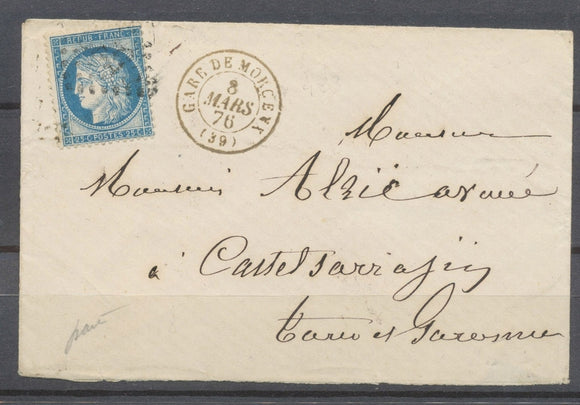 REPUB. FRANC.
25 C. POSTES 25 C.
GARE DE MORCENX
8
MARS
76
(39)
Monsieur
Monsieur Alric avoué
à Castelsarrasin
Tarn et Garonne